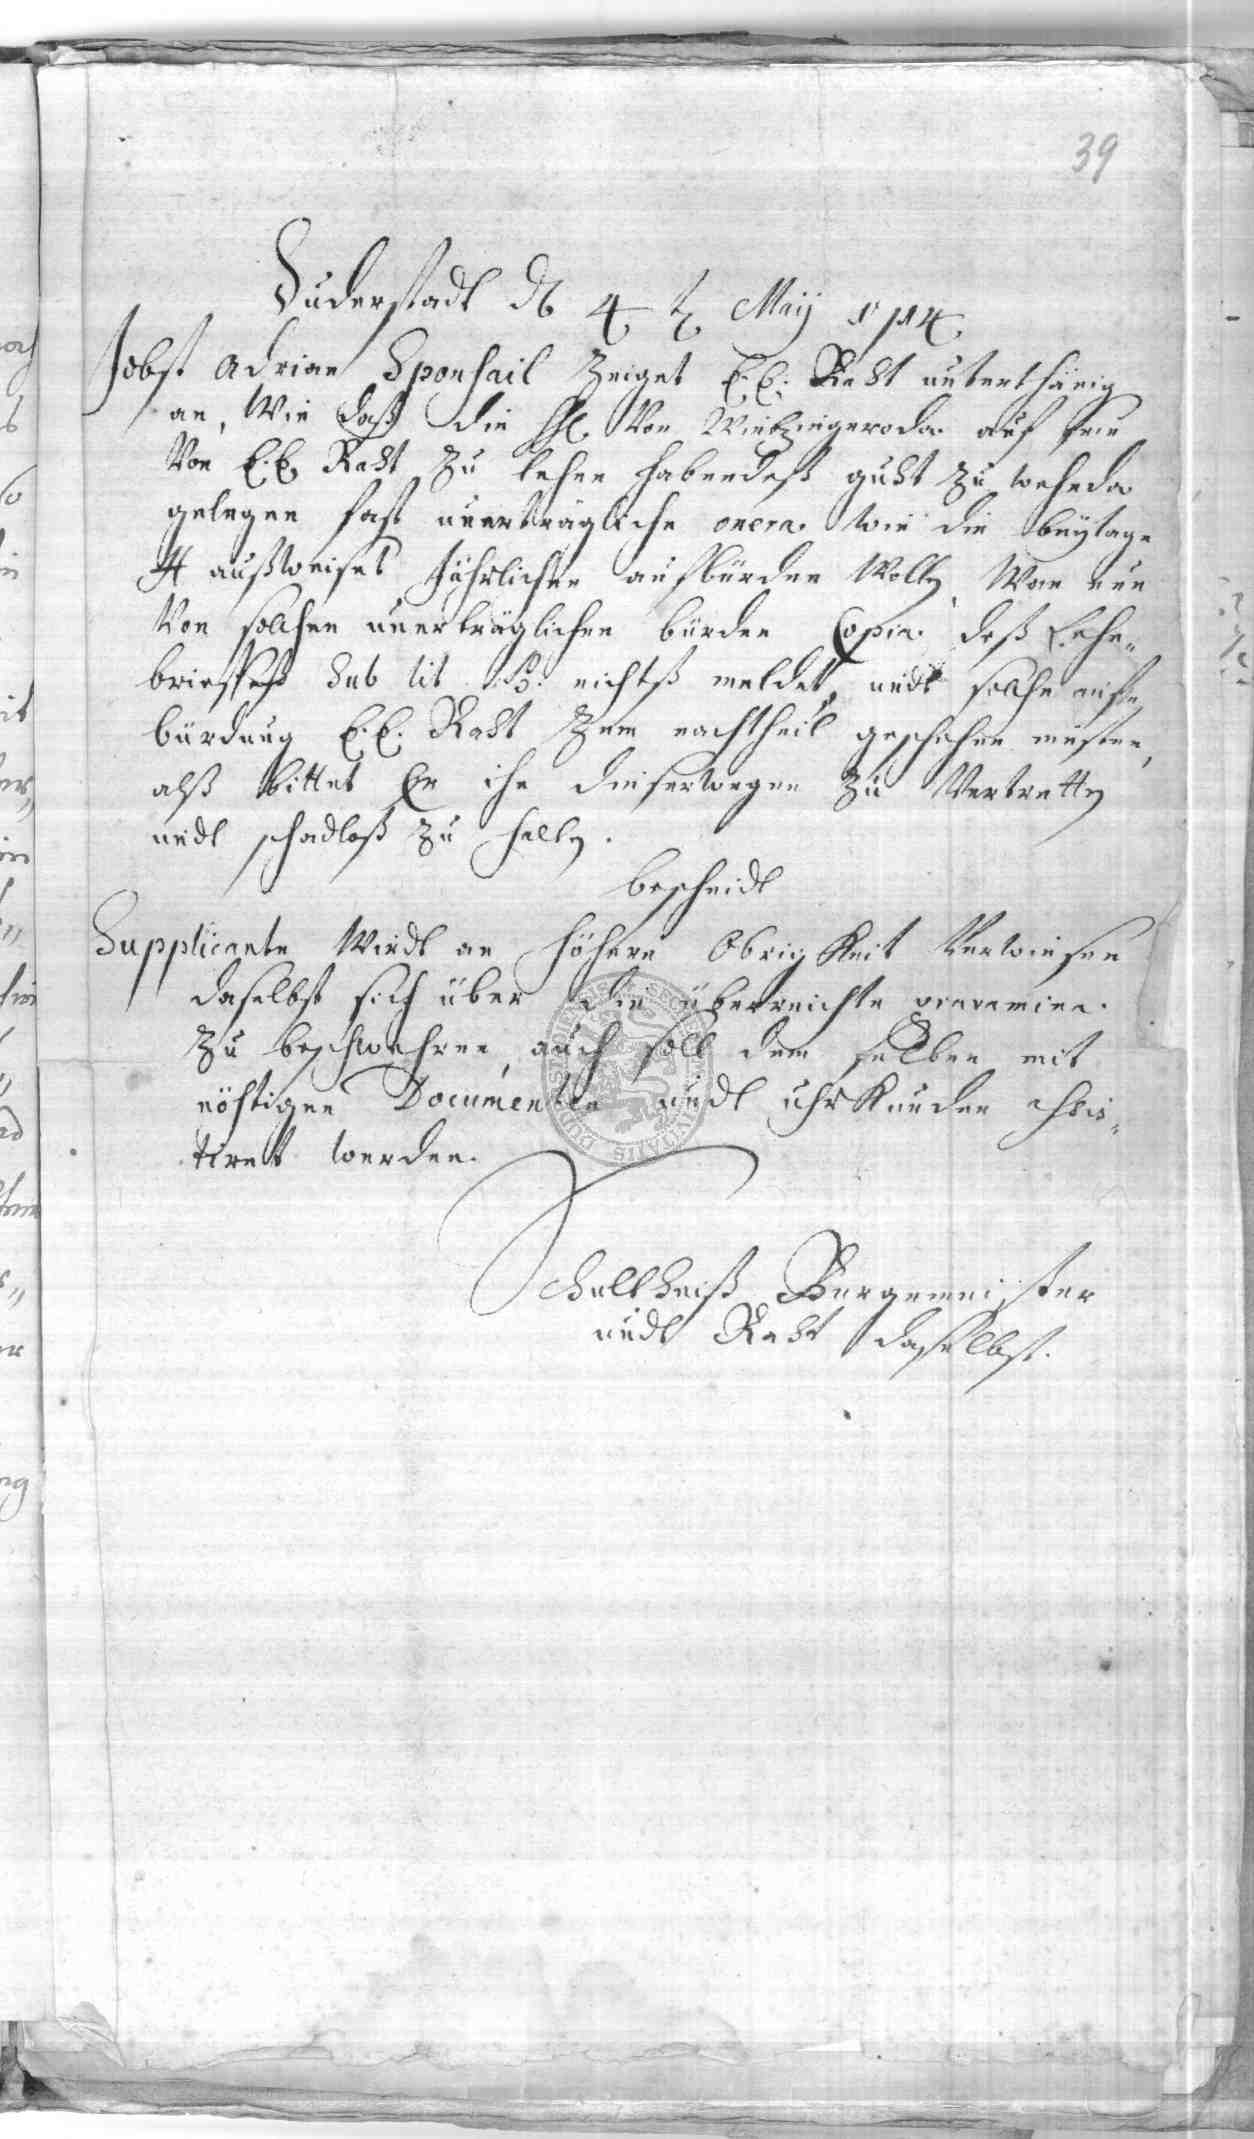 39
Duderstadt d 4 t May 1714
Jobst Adrian Sponsail zeiget E. E. Raht unterthänig
an, Wie daß die HH. Von Wintzingeroda auf sein
Von E. E. Raht zu lehen habendeß guht zu wehnda
gelegen fast unerträgliche onera wie die beylage
A außweiset Jährlichen aufbürden Wollen, Wan nun
Von solchen unerträglichen bürden Copia deß Lehn-
brieffeß Sub lit. B. nichtß meldet, undt solche auff
bürdung E. E. Raht zum nachtheil geschehen müsten,
alß bittet Er ihn dieserwegen zu Vertretten
undt schadloß zu halten.
bescheidt
Supplicante Wirdt an höhere Obrigkeit Verwiesen
daselbst sich über die überreichte gravamina
zu beschwehren, auch soll dem selben mit
nöhtigen Documenten undt uhrkunden assis-
tiret werden.
Schultheiß Burgemeister
undt Raht daselbst.